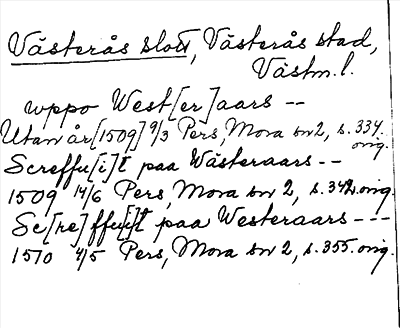 Västerås slott, Västerås stad,
Västm. l.
uppo West[er]aars --
Utan år [1509] 9/3 Pers, Mora sn 2, s. 334. orig.
Screffu[i]t paa Wästeraars --
1509 14/6 Pers, Mora sn 2, s. 342. orig.
Sc[re]ffu[i]t paa Westeraars ---
1510 4/5 Pers, Mora sn 2, s. 355. orig.